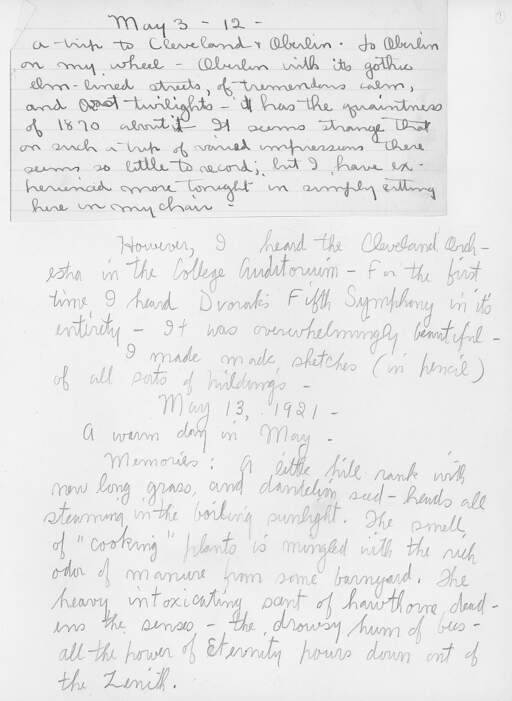 May 3 - 12 -
a trip to Cleveland & Oberlin. To Oberlin
on my wheel - Oberlin with its gothic
elm-lined streets, of tremendous calm,
and twilights - It has the quaintness
of 1870 about it - It seems strange that
on such a trip of varied impressions there
seems so little to record; but I have ex-
perienced more tonight in simply sitting
here in my chair -
However, I heard the Cleveland Orch-
estra in the College Auditorium - For the first
time I heard Dvorak's Fifth Symphony in it's
entirety - It was overwhelmingly beautiful -
I made sketches (in pencil)
of all sorts of buildings -
May 13, 1921 -
A warm day in May -
Memories: A little hill rank with
new long grass, and dandelion seed-heads all
steaming in the boiling sunlight. The smell
of "cooking" plants is mingled with the rich
odor of manure from some barnyard. The
heavy intoxicating scent of hawthorne dead-
ens the senses - the drowsy hum of bees -
all the power of Eternity pours down out of
the Zenith.